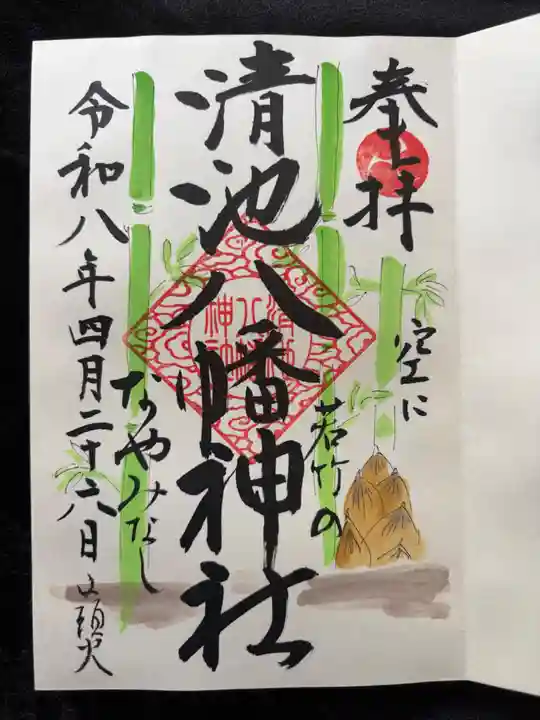 奉拝
空に
若竹の
なやみなし
清池八幡神社
令和八年四月二十六日